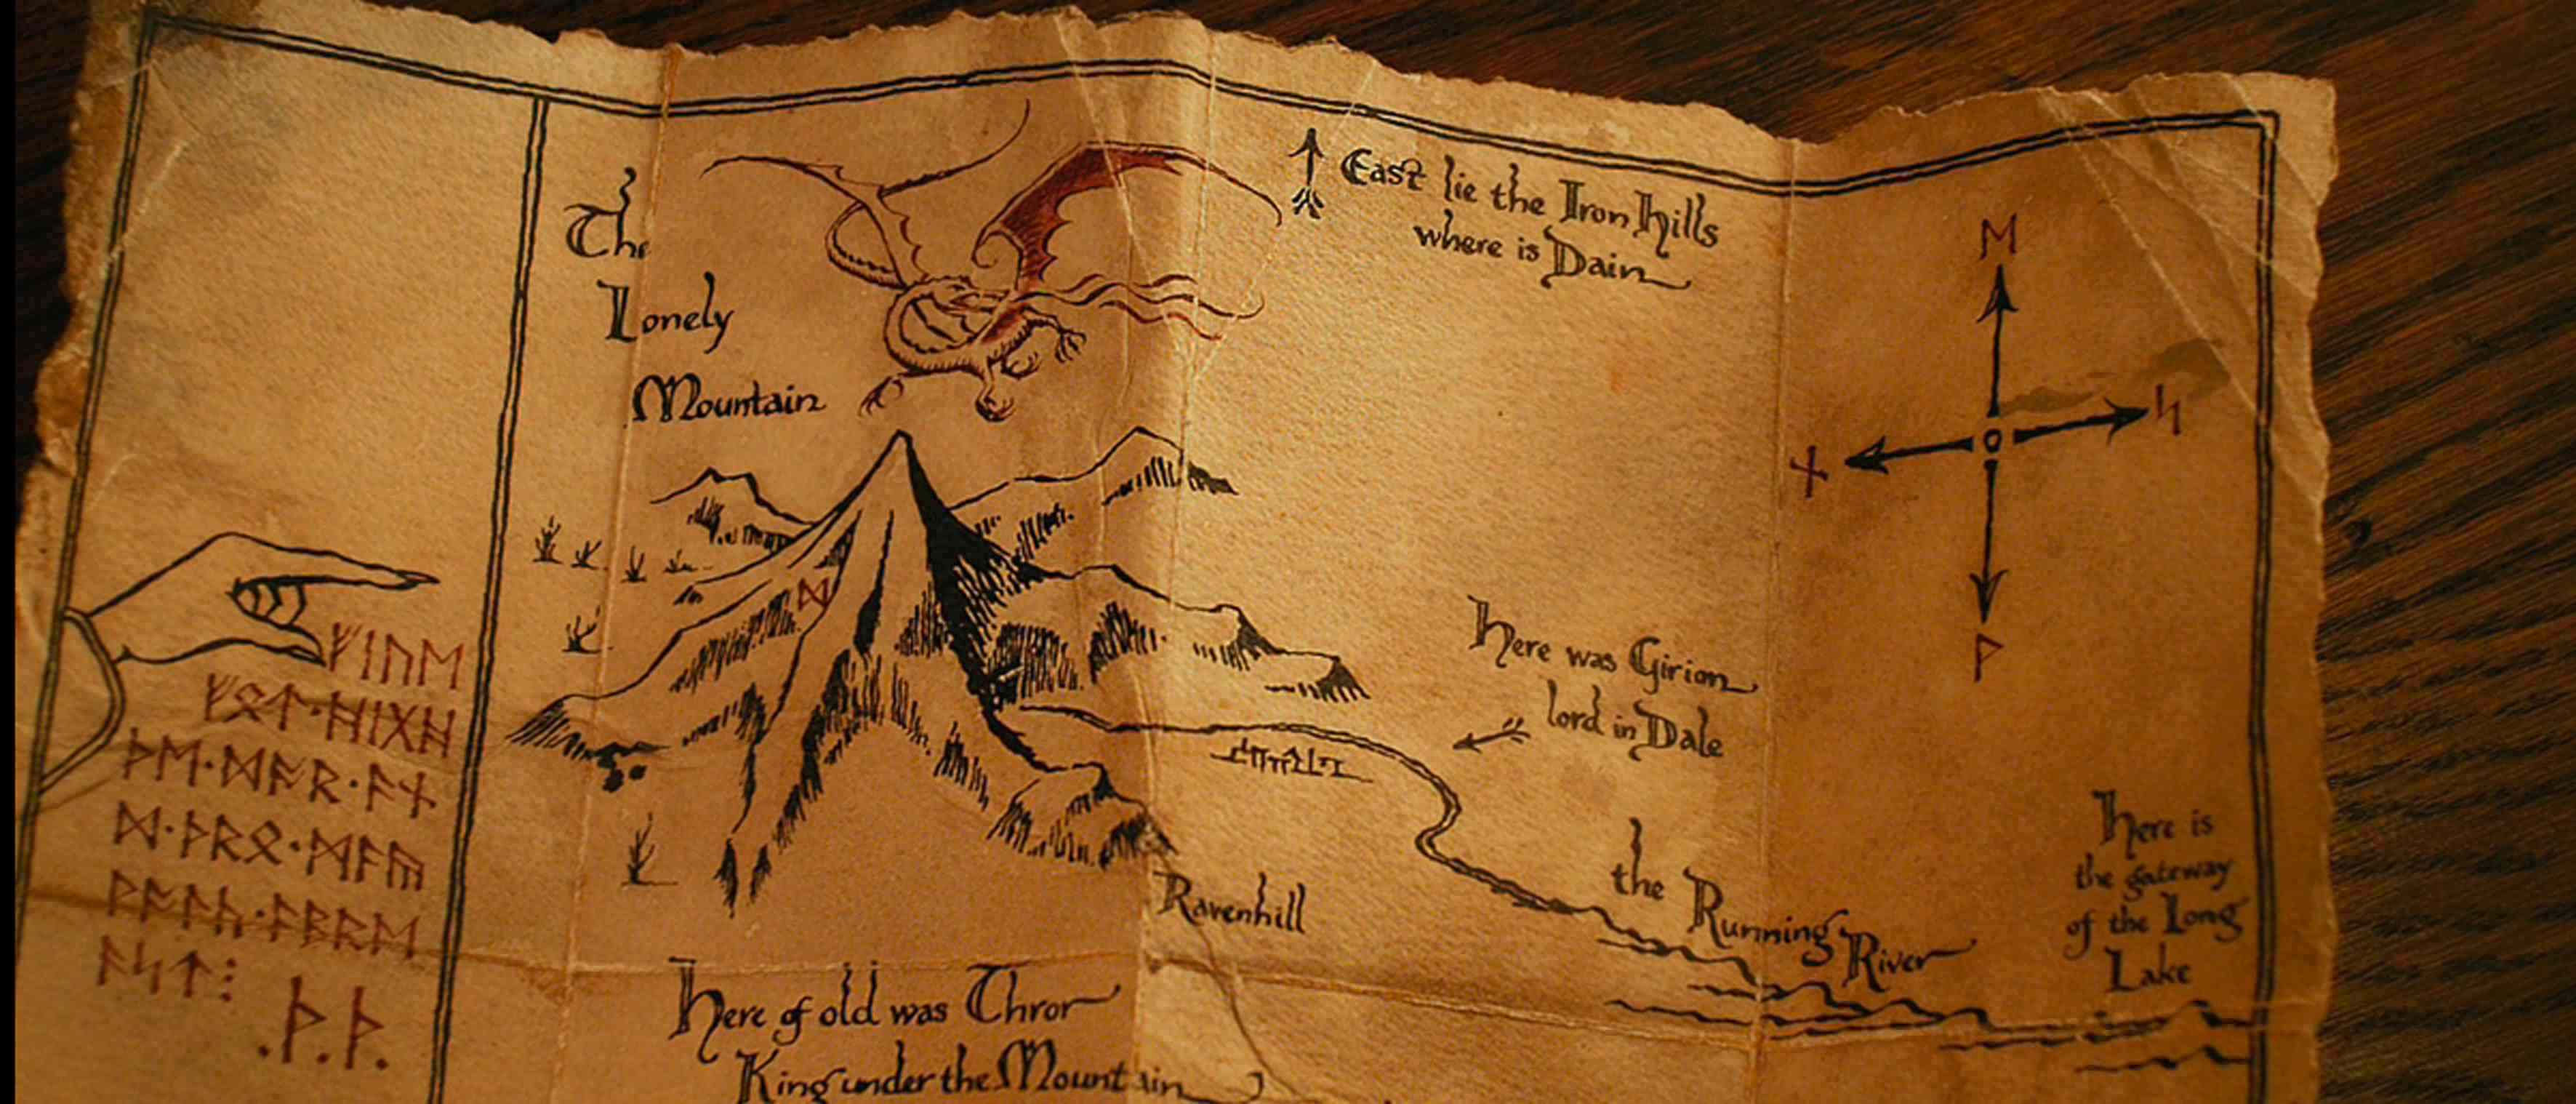 The
Lonely
Mountain
East lie the Iron Hills
where is Dain
ᛖ
ᚾ
ᛋ
ᚹ
ᛞ
ᚠᛁᚢᛖ
ᚠᛟᛏ·ᚻᛁᚷᚻ
ᚦᛖ·ᛞᚩᚱ·ᚪᚾ
ᛞ·ᚦᚱᛟ·ᛗᚪᚣ
ᚹᚪᛚᚳ·ᚪᛒᚱᛖ
ᚪᛋᛏ⁝
.ᚦ.ᚦ.
Here was Girion
lord in Dale
the Running River
Ravenhill
Here is
the gateway
of the Long
Lake
Here of old was Thror
King under the Mountain